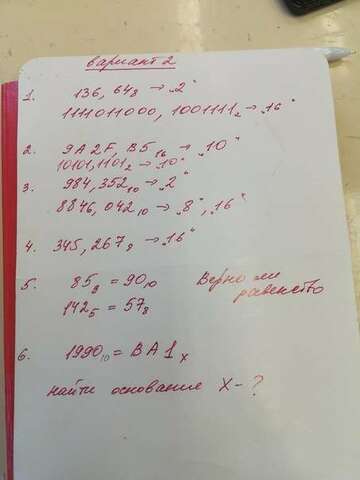 Вариант 2
1. 136, 64₈ → „2"
1111011000, 1001111₂ → „16"
2. 9A2F, B5₁₆ → „10"
10101,1101₂ → „10"
3. 984,352₁₀ → „2"
8846,042₁₀ → „8", „16"
4. 345,267₈ → „16"
5. 85₉ = 90₁₀ Верно ли
142₅ = 57₈ равенство
6. 1990₁₀ = BA1ₓ
найти основание X-?